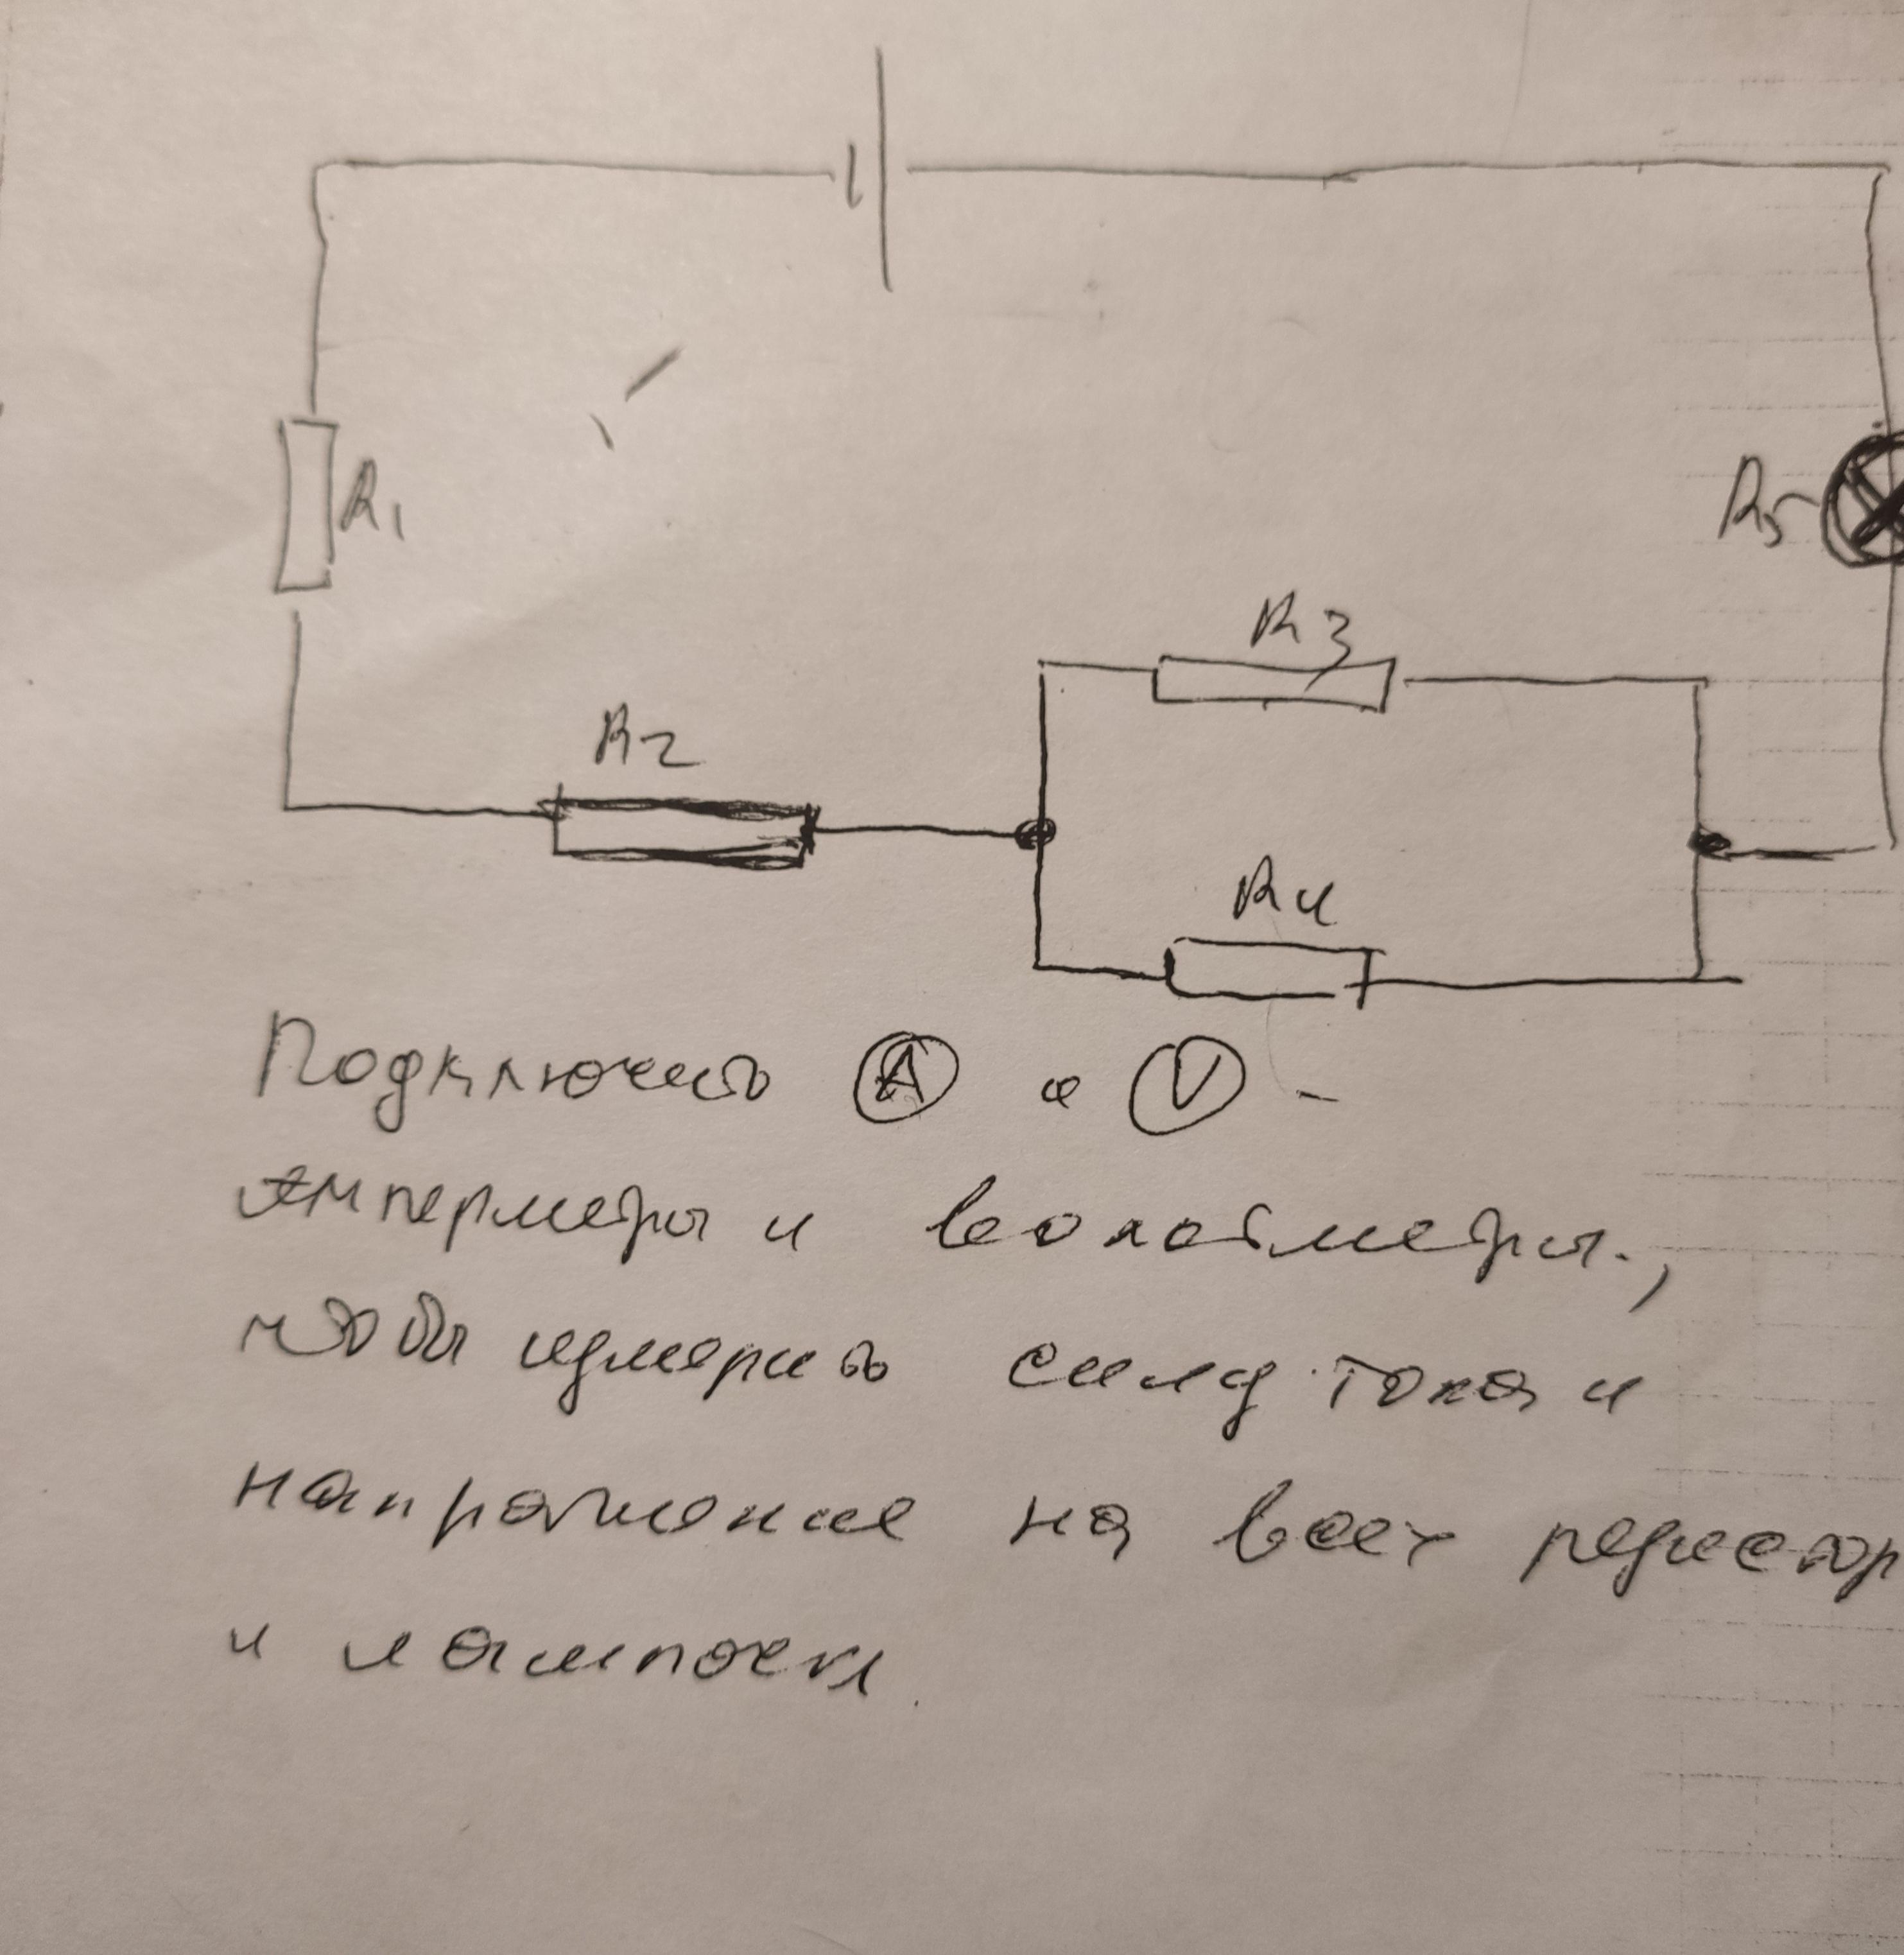 R1
R5
R3
R2
R4
Подключить A и V -
амперметры и вольтметры,
чтобы измерить силу тока и
напряжение на всех резистор
и лампочки.